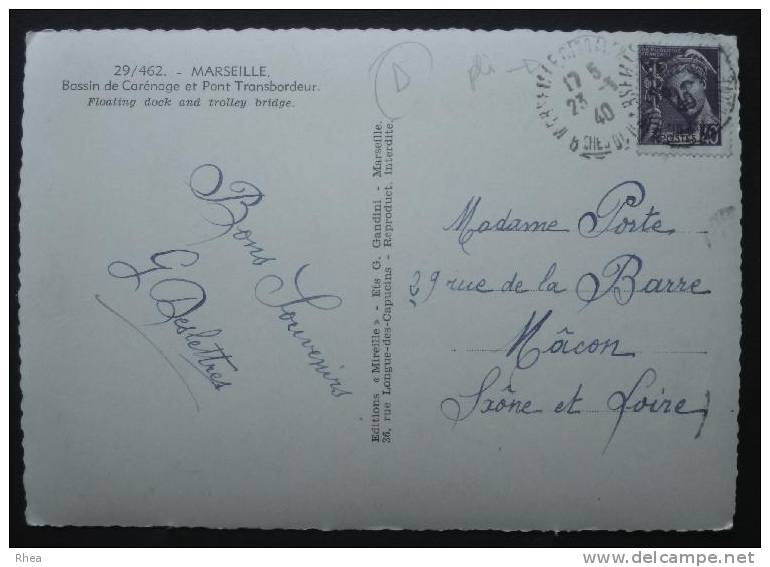 29/462. - MARSEILLE.
Bassin de Carénage et Pont Transbordeur.
Floating dock and trolley bridge.
D
pli
17 5
23 - 1
40
POSTES
Bons Souvenirs
G Deslettres
Editions « Mireille » - Ets G. Gandini - Marseille.
36, rue Longue-des-Capucins - Reproduct. interdite.
Madame Porte
29 rue de la Barre
Mâcon
Saône et Loire
Rhea
delcampe.net